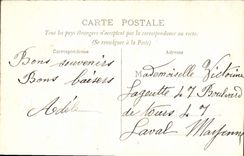 CARTE POSTALE
Tous les pays étrangers n'acceptent pas la correspondance au recto.
(Se renseigner à la Poste)
Correspondance
Adresse
Bons souvenirs
Bons baisers
Adèle
Mademoiselle Victorine
47 Boulevard
de tours 47
Laval Mayenne